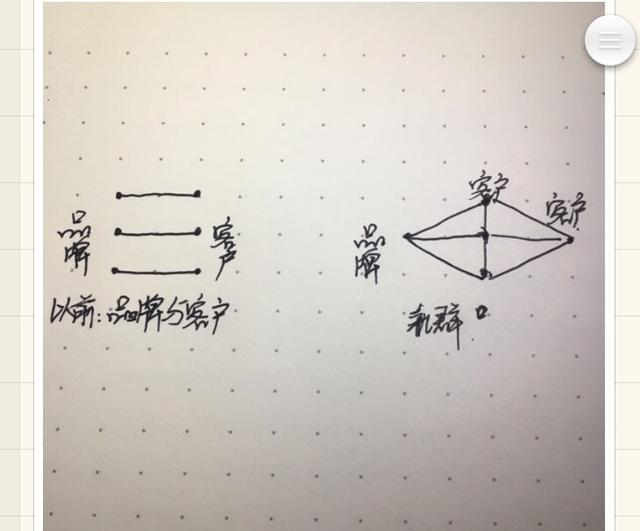 品牌
客户
以前:品牌与客户
品牌
客户
客户
群